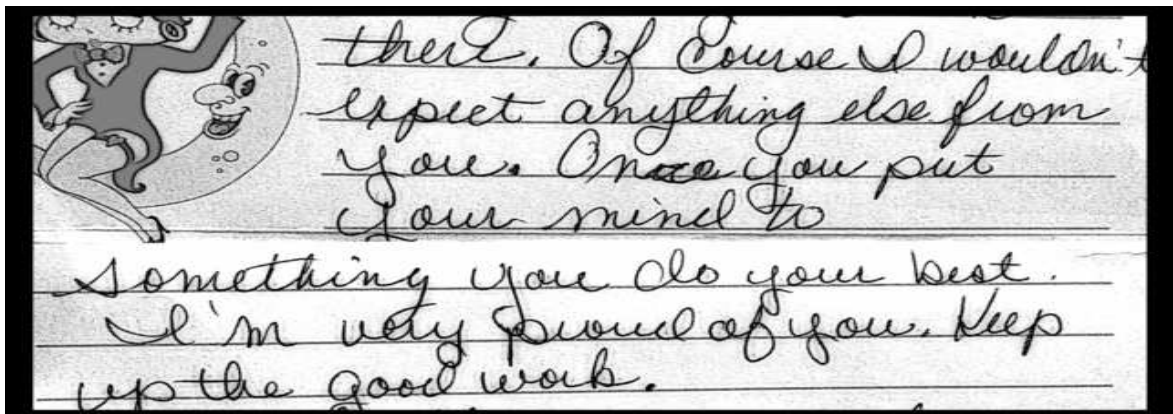 there. Of course I wouldn't
expect anything else from
you. Once you put
your mind to
something you do your best.
I'm very proud of you. Keep
up the good work.